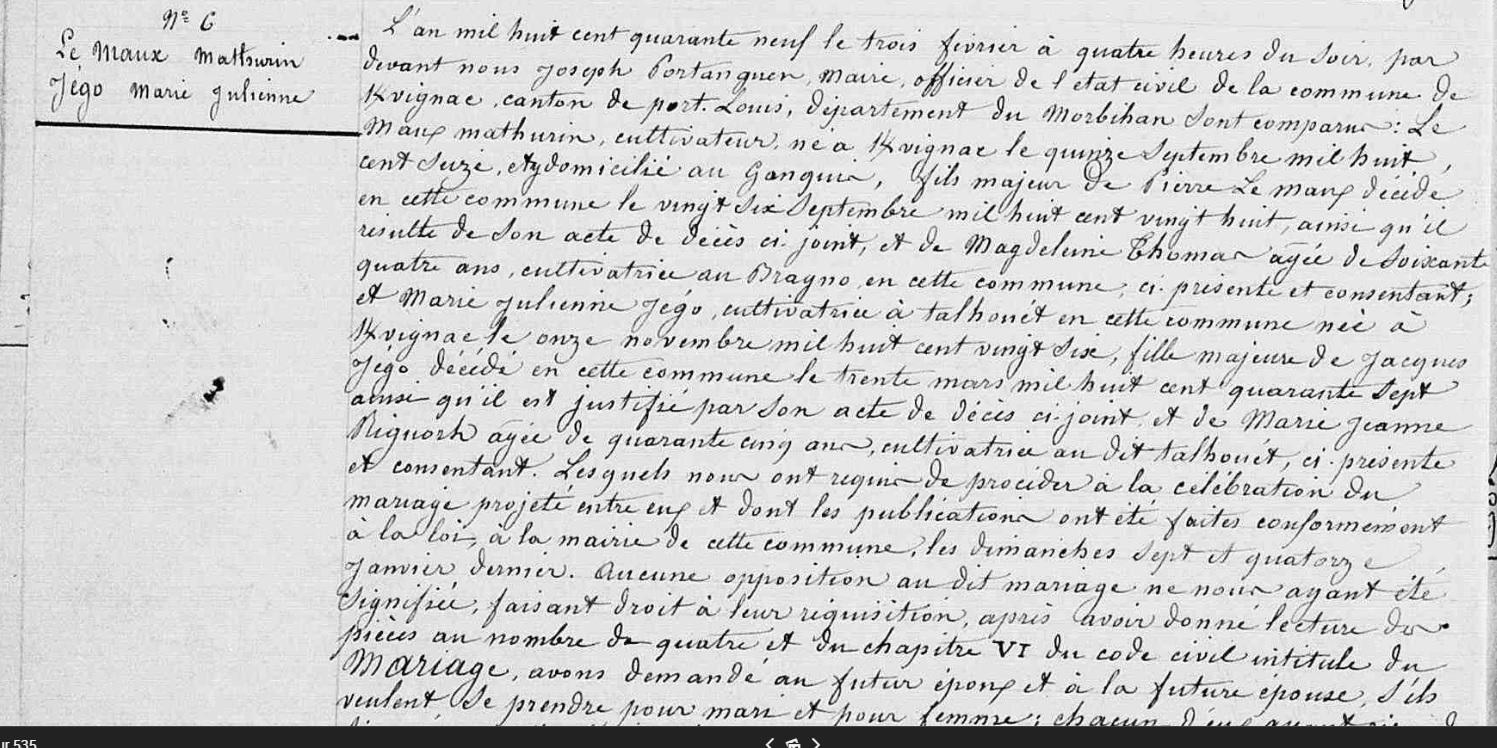 Nº 6
Le Maux Mathurin
Jégo Marie Julienne
L'an mil huit cent quarante neuf le trois février à quatre heures du soir, par
devant nous Joseph Portanguen, maire, officier de l'etat civil de la commune de
Kvignac, canton de port-Louis, département du Morbihan sont comparus : Le
Maux mathurin, cultivateur, né à Kvignac le quinze Septembre mil huit
cent seize, et y domicilié au Ganquis, fils majeur de Pierre Le maux décédé
en cette commune le vingt six Septembre mil huit cent vingt huit, ainsi qu'il
résulte de son acte de décès ci-joint, et de Magdeleine Thomas agée de soixante
quatre ans, cultivatrice au Bragno en cette commune, ci-présente et consentant;
et Marie Julienne Jégo, cultivatrice à talhouët en cette commune née à
Kvignac le onze novembre mil huit cent vingt six, fille majeure de Jacques
Jégo décédé en cette commune le trente mars mil huit cent quarante sept
ainsi qu'il est justifié par son acte de décès ci-joint, et de Marie Jeanne
Riguorh agée de quarante cinq ans, cultivatrice au dit talhouët, ci-présente
et consentant. Lesquels nous ont requis de procéder à la célébration du
mariage projeté entre eux et dont les publications ont été faites conformément
à la loi, à la mairie de cette commune, les dimanches sept et quatorze
Janvier dernier. Aucune opposition au dit mariage ne nous ayant été
signifiée, faisant droit à leur réquisition, après avoir donné lecture des
pièces au nombre de quatre et du chapitre VI du code civil intitulé du
Mariage, avons demandé au futur époux et à la future épouse, s'ils
veulent se prendre pour mari et pour femme ; chacun d'eux ayant
ur 535